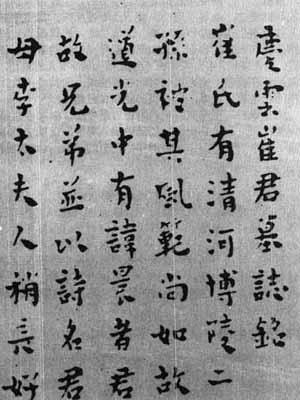 慶雲崔君墓誌銘
崔氏有清河博陵二
孫被其風範尚如故
道光中有諱晨者君
故兄弟並以詩名君
母李太夫人稍長好